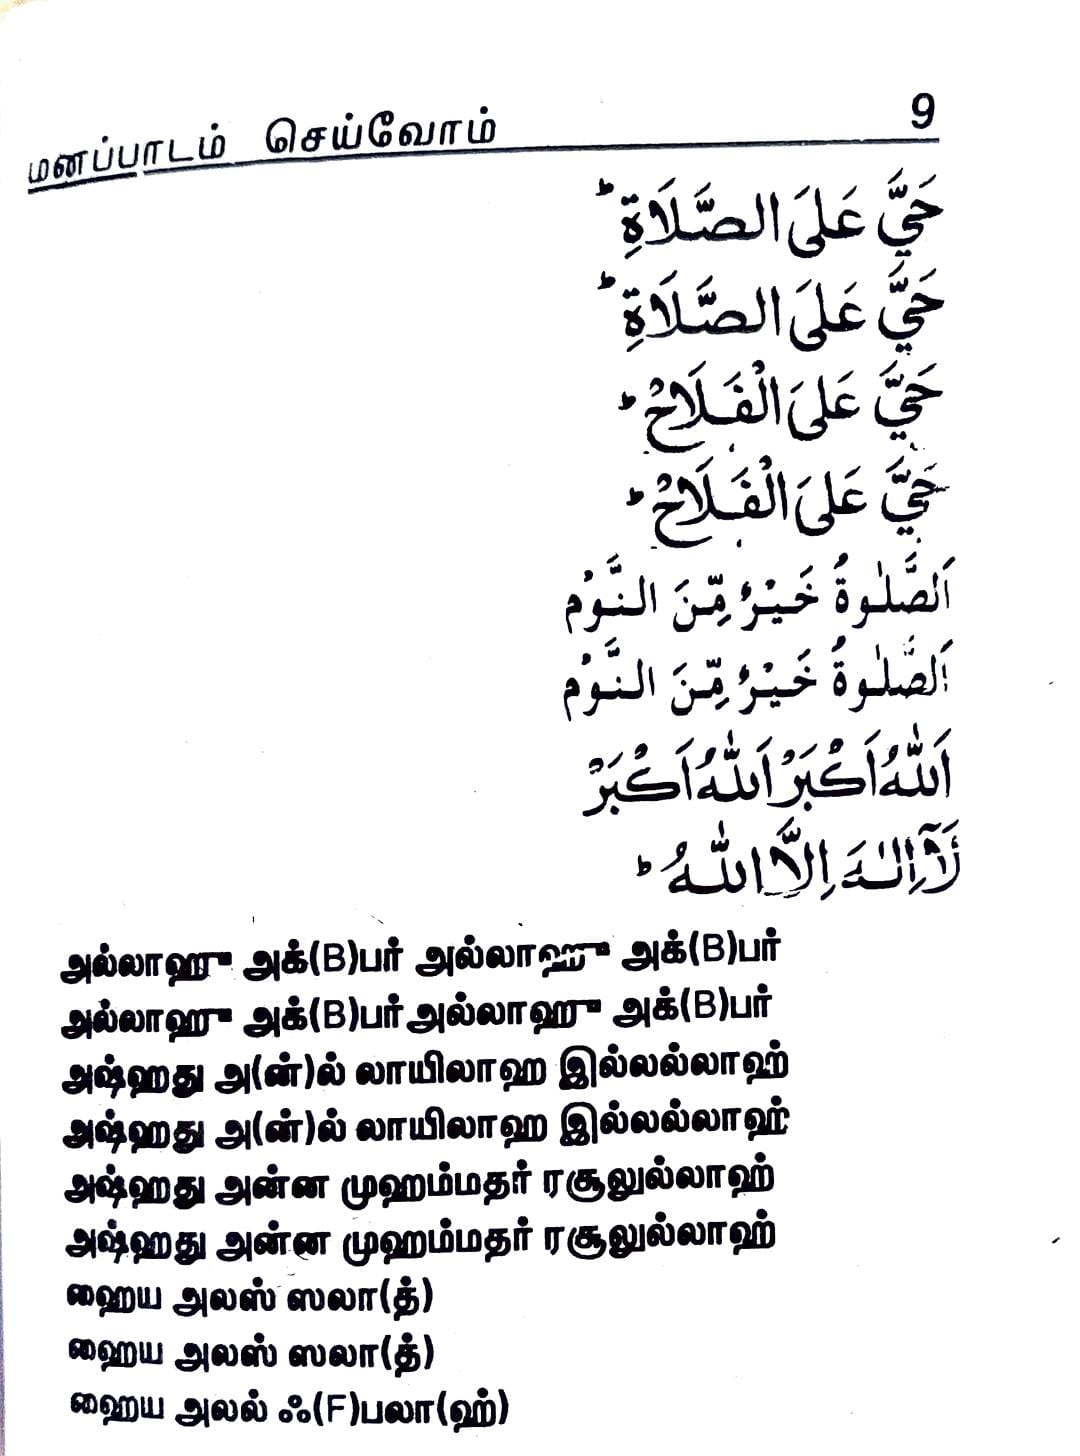 மனப்பாடம் செய்வோம் 9
حَيَّ عَلَى الصَّلَاةِ ؕ
حَيَّ عَلَى الصَّلَاةِ ؕ
حَيَّ عَلَى الْفَلَاحْ ؕ
حَيَّ عَلَى الْفَلَاحْ ؕ
اَلصَّلٰوةُ خَيْرٌ مِّنَ النَّوْمْ
اَلصَّلٰوةُ خَيْرٌ مِّنَ النَّوْمْ
اَللّٰهُ اَكْبَرْ اَللّٰهُ اَكْبَرْ
لَآ اِلٰهَ اِلَّا اللّٰهُ ؕ
அல்லாஹு அக்(B)பர் அல்லாஹு அக்(B)பர்
அல்லாஹு அக்(B)பர் அல்லாஹு அக்(B)பர்
அஷ்ஹது அ(ன்)ல் லாயிலாஹ இல்லல்லாஹ்
அஷ்ஹது அ(ன்)ல் லாயிலாஹ இல்லல்லாஹ்
அஷ்ஹது அன்ன முஹம்மதர் ரசூலுல்லாஹ்
அஷ்ஹது அன்ன முஹம்மதர் ரசூலுல்லாஹ்
ஹைய அலஸ் ஸலா(த்)
ஹைய அலஸ் ஸலா(த்)
ஹைய அலல் ஃ(F)பலா(ஹ்)